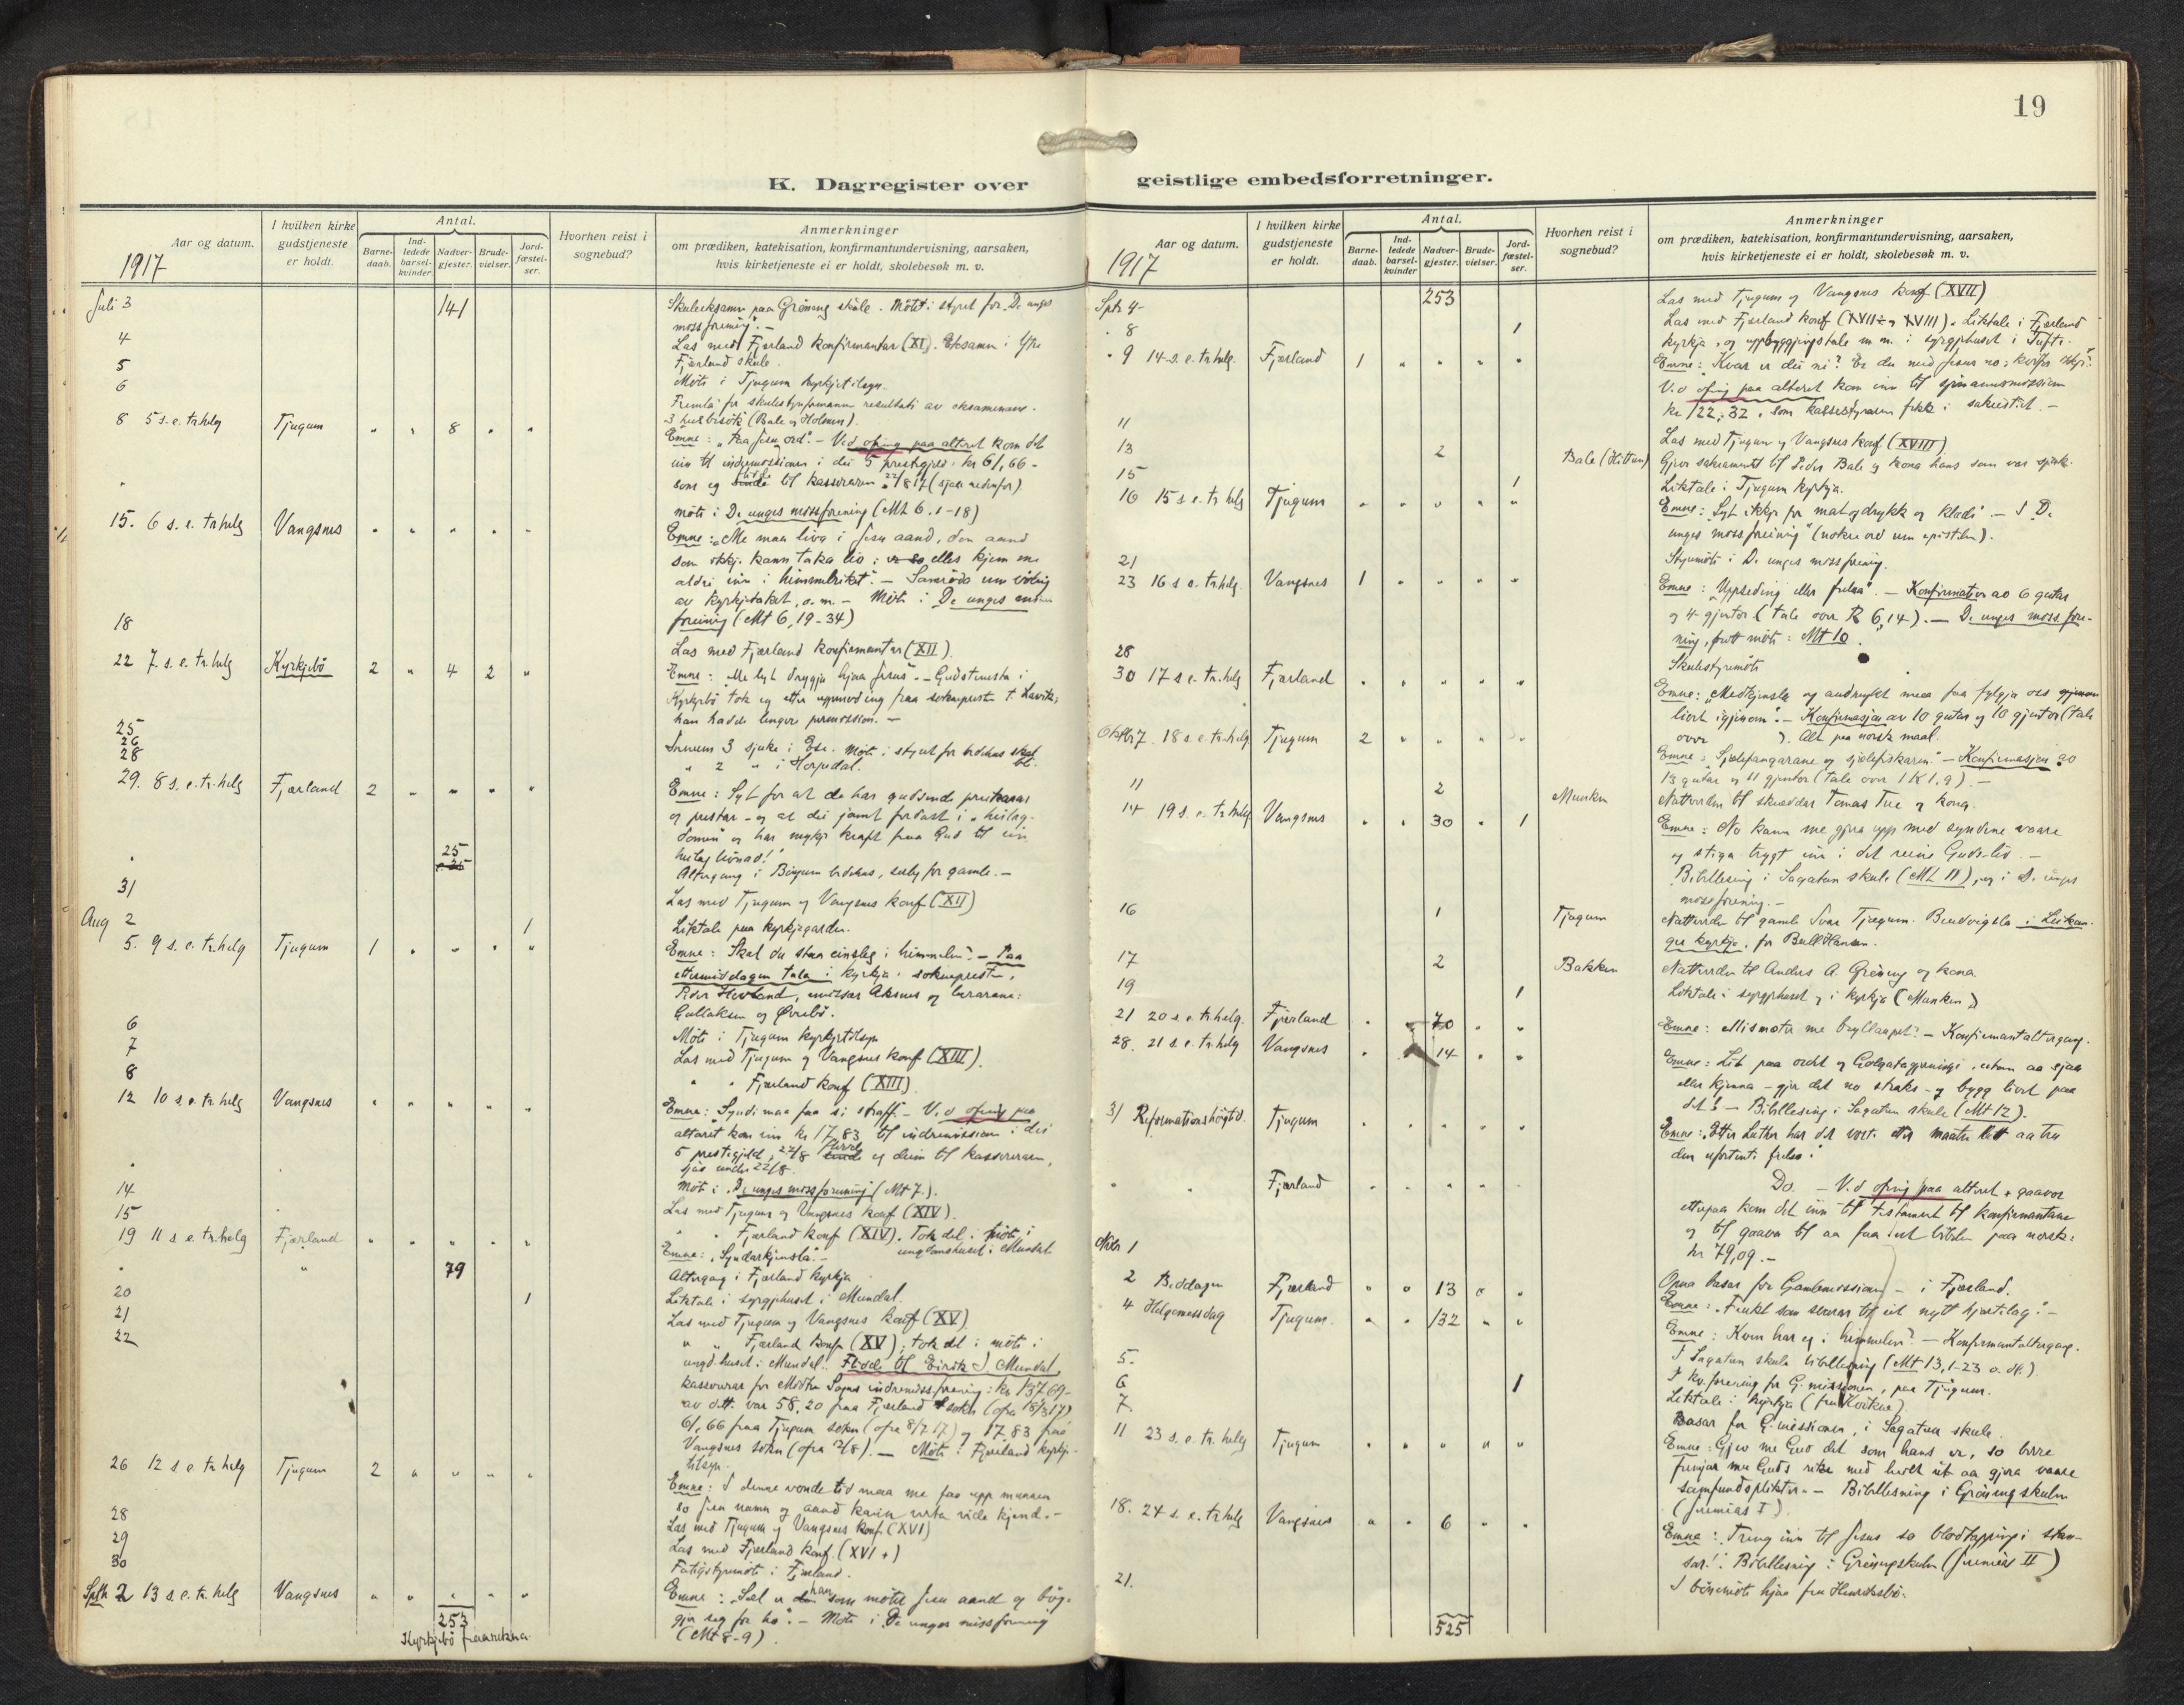 19
K. Dagregister over geistlige embedsforretninger.
Aar og datum.
1917
I hvilken kirke gudstjeneste er holdt.
Antal.
Barne-daab.
Ind-ledede barsel-kvinder.
Nadver-gjester.
Brude-vielser.
Jord-fæstel-ser.
Hvorhen reist i sognebud?
Anmerkninger
om prædiken, katekisation, konfirmantundervisning, aarsaken,
hvis kirketjeneste ei er holdt, skolebesøk m. v.
Juli 3 141 Skuleeksamen paa Gröneng skule. Möte i styret for De unges
missforening". -
4 Las med Fjærland konfirmantar (XI). Eksamen i Ytre
5 Fjærland skule.
6 Möte i Tjugum kyrkjetilsyn.
8 5 s. e. tr.helg Tjugum " " 8 " "
3 husbesök (Bale og Holmen).
Emne: "Fraa Jesu ord". - Ved ofring paa altaret kom det
inn til indremissionen i dei 5 prestegjeld. kr 61,66 -
som eg til kasseraren 22/8 17 (sjaa nedanfor)
" möte i De unges missforening (Mt 6. 1-18)
15. 6 s. e. tr.helg Vangsnes " " " " "
Emne: "Me maa liva i Jesu aand, den aand
som ikkje kann taka liv; elles kjem me
aldri inn i himmelriket". - Samröda um
av kyrkjetaket, o. m. - Möte i De unges
forening (Mt 6, 19-34)
18 Las med Fjærland konfirmantar (XII).
22 7. s. e. tr.helg Kyrkjebö 2 " 4 2 "
Emne: "Me lyt tryggja hjaa Jesus". - Gudstenesta i
Kyrkjebö tok eg etter uppmoding fraa sokneprest t. Lavik;
han hadde lenger permission. -
25
26
28 2 " i Hoprdal.
29. 8 s. e. tr. helg Fjærland 2 " " " "
Emne: Syt for at de har gudsende
og prestar - og at dei jamt
og har mykje kraft fraa Gud til ein
" 25
Altergang i Böyum bedehus, serleg for gamle. -
31 Las med Tjugum og Vangsnes konf (XII)
Aug 2 1 Liktale paa kyrkjegarden.
5. 9 s. e. tr.helg Tjugum 1 " " " "
Emne: Skal du staa einsleg i himmelen? - Paa
ettermiddagen tala i kyrkja: soknepresten,
Peder Hovland, Aksnes og lærarane:
Gullaksen og Övrebö.
6 Möte i Tjugum kyrkjetilsyn
7 Las med Tjugum og Vangsnes konf (XIII).
8 " " Fjærland konf (XIII).
12 10 s. e. tr. helg Vangsnes " " " " "
Emne: Syndi maa faa si straff. - Ved ofring paa
altaret kom inn kr 17,83 til indremission i dei
5 prestegjeld, 22/8 eg deim til kasseraren,
sjaa under 22/8.
" Möte i "De unges missforening (Mt 7.).
14 Las med Tjugum og Vangsnes konf (XIV).
15 " " Fjærland konf (XIV). Tok del i möte i
ungdomshuset i Mundal.
19 11 s e. tr.helg Fjærland " " " " "
Emne: "Syndarkjensla". -
" " 79 Altergang i Fjærland kyrkja
20 1 Liktale i syrgjehuset i Mundal.
21 Las med Tjugum og Vangsnes konf (XV)
22 " " Fjærland konf (XV); tok del i möte i
ungd.huset i Mundal. til Eirik J. Mundal,
kasserar for Midtre Sogns indremiss.forening: kr 137,69 -
av dett. var 58,20 fraa Fjærland sokn
61,66 fraa Tjugum sokn (ofra 8/7 17) og 17,83 fraa
Vangsnes sokn (ofra 12/8). - Möte i Fjærland kyrkje-
tilsyn.
26 12 s e. tr helg Tjugum 2 " " " "
Emne: I denne vonde tid maa me faa upp munnen
so Jesu namn og aand kann verta vide kjend. -
28 Las med Tjugum og Vangsnes konf. (XVI)
29 Las med Fjærland konf. (XVI +)
30 Fatigstyremöte i Fjærland.
Septb 2 13 s. e. tr. helg Vangsnes " " " " "
Emne: "Sæl er han som möter Jesu aand og böy-
gjer seg for ho". - Möte i De unges missforening
(Mt 8-9).
253
Kyrkjebö fraarekna
Aar og datum.
1917
I hvilken kirke gudstjeneste er holdt.
Antal.
Barne-daab.
Ind-ledede barsel-kvinder
Nadver-gjester.
Brude-vielser.
Jord-fæstel-ser.
Hvorhen reist i sognebud?
Anmerkninger
om prædiken, katekisation, konfirmantundervisning, aarsaken,
hvis kirketjeneste ei er holdt, skolebesøk m. v.
Septr 4 253 Las med Tjugum og Vangsnes konf (XVII)
" 8 1 Las med Fjærland konf (XVII og XVIII). Liktale i Fjærland
kyrkja, og uppbyggingstale m. m. i syrgjehuset i Tufte.
" 9 14 s. e. tr.helg. Fjærland 1 " " " "
Emne: Kvar er dei ni? Er du med Jesus no; kvifor ikkje?
Ved ofring paa alteret kom inn til sjömannsmission
kr 122,32, som kassestyraren fekk i sakristiet. -
11 Las med Tjugum og Vangsnes konf (XVIII)
13 2 Bale (Hitten) Gjev sakrament til Peder Bale og kona hans som var sjuk.
15 1 Liktale i Tjugum kyrkja.
16 15 s e. tr helg Tjugum " " " " "
Emne: Syt ikkje for mat og drykk og klæde". - I De
unges missforening (nokre ord um epistelen).
21 Styremöte i De unges missforening.
23 16 s e. tr.helg. Vangsnes 1 " " " "
Emne: "Uppseding eller frelsa". - Konfirmation av 6 gutar
og 4 gjentor (tale over R 6,14). - De unges missfore-
ning, möte: Mt 10.
28 Skulestyremöte
30 17 s e. tr. helg Fjærland " " " " "
Emne: "Medkjensla og audmykt maa faa fylgja oss gjennom
livet igjenom". - Konfirmasjon av 10 gutar og 10 gjentor (tale
over ). Alt paa norsk maal.
Oktbr 7. 18 s. e. tr.helg Tjugum 2 " " " "
Emne: "Sjælefangarane og sjælefiskaren" - Konfirmasjon av
13 gutar og 11 gjentor (tale over 1 K 1,9). -
11 2 Munken Nattverden til skræddar Tomas Tue og kona.
14 19 s. e. tr helg Vangsnes " " 30 " 1
Emne: No kann me gjera upp med syndene vaare
og stiga trygt inn i det reine Guds-liv. -
Bibellesing i Sagatun skule (Mt 11), og i D. unges
missforening. -
16 1 Tjugum Nattverden til gamle Tjugum. Brudvigsla i Leikan-
ger kyrkje, for Bull Hansen.
17 2 Bakken Nattverden til Anders A. Gröneng og kona
19 1 Liktale i syrgjehuset og i kyrkja (Munken)
21 20 s. e. tr.helg. Fjærland " " 70 " "
Emne: Mismoter me bryllaupet? - Konfirmantaltergang.
28. 21 s e. tr. helg Vangsnes " " 14 " "
Emne: Lit paa ordet og Golgatagjerningi, utan aa sjaa
eller kjenna - gjer det no straks - og bygg livet paa
det! - Bibellesing i Sagatun skule (Mt 12).
31 Reformationshögtid. Tjugum " " " " "
Emne: "Etter Luther har det vore lett aa tru
den ufortente frelsa".
" " Fjærland " " " " "
Do. - Ved ofring paa alteret + gaavor
etterpaa kom det inn til testament til konfirmantane
og til gaava til aa faa ut bibelen paa norsk:
kr 79,09. -
Novbr 1 Opna basar for Gamlemissionen - i Fjærland.
2 Beddagen Fjærland " " 13 " "
Emne: "Frukt som svarar til eit nytt hjartelag". -
4 Helgemessdag Tjugum. " " 132 " "
Emne: Kven har eg i himmelen? - Konfirmantaltergang.
I Sagatun skule bibellesing (Mt 13,1-23 o. fl.).
5. I kv.forening for G. missionen, paa Tjugum.
6 1 Liktale i kyrkja
7. Basar for G. missionen, i Sagatun skule.
11 23 s. e. tr. helg Tjugum " " " " "
Emne: Gjev me Gud det som hans er, so
fremjar me Guds rike med hult ut aa gjera vaare
samfundsplikter. - Bibellesning i Gröneng skulen
(Jeremias I).
18. 24 s. e. tr helg Vangsnes " " 6 " "
Emne: Treng inn til Jesus so blodtappingi stan-
sar!". Bibellesing i Gröneng skulen (Jeremias II)
21. I bönemöte hjaa fru Henrikssbö.
525